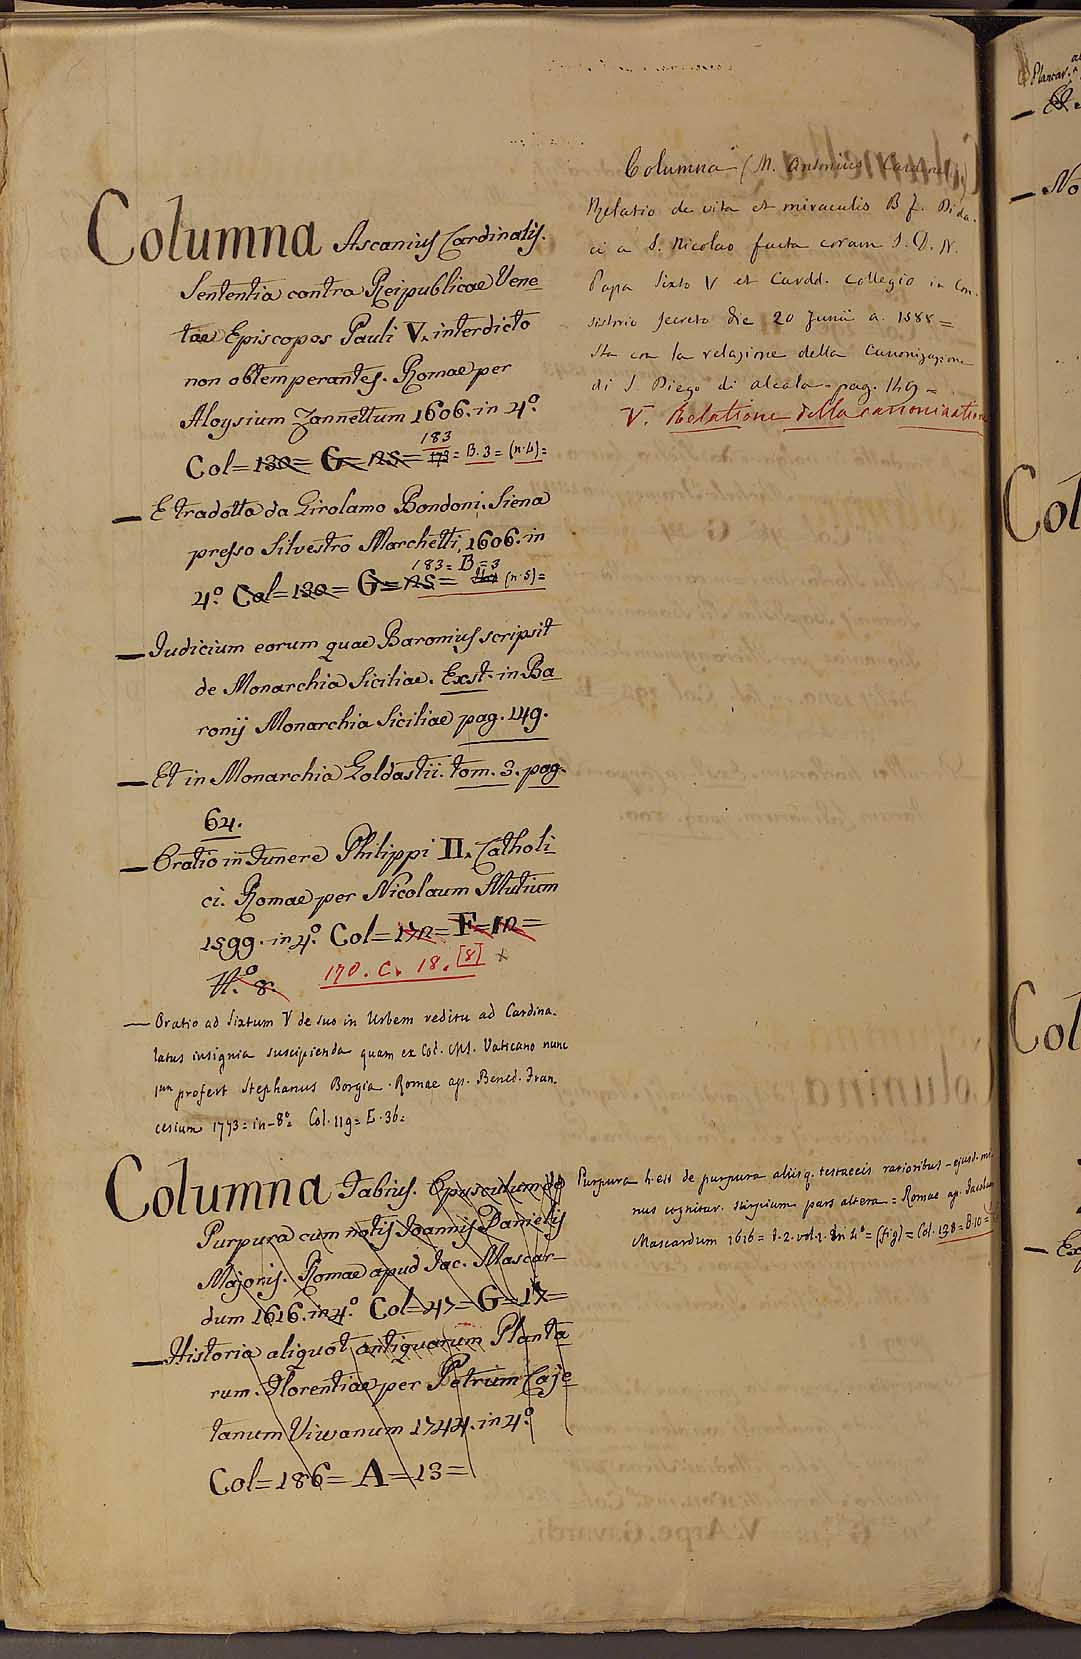 Columna Ascanius Cardinalis.
Sententia contra Reipublicae Vene
tae Episcopos Pauli V. interdicto
non obtemperantes. Romae per
Aloysium Zannettum 1606. in 4.º
183
Col = 130 = G = 125 = 173 = B. 3 = (n. 4) =
— E tradotta da Girolamo Bondoni. Siena
presso Silvestro Marchetti, 1606. in
183 = B = 3
4.º Col = 130 = G = 125 = (n. 5) =
— Judicium eorum quae Baronius scripsit
de Monarchia Siciliae. Exst. in Ba
ronij Monarchia Siciliae pag. 149.
— Et in Monarchia Goldastii. tom. 3. pag.
64.
— Oratio in Funere Philippi II. Catholi
ci. Romae per Nicolaum Mutium
1599. in 4.º Col = 172 = F = 12 =
N.º 8.
170. C. 18. [8] x
— Oratio ad Sixtum V de suo in Urbem reditu ad Cardina-
latus insignia suscipienda quam ex Cod. MS. Vaticano nunc
1um profert Stephanus Borgia. Romae ap. Bened. Fran.
cesium 1773 = in-8º = Col. 119 = E. 36 =
Columna Fabius. Opusculum de
Purpura cum notis Joannis Danielis
Majoris. Romae apud Jac. Mascar-
dum 1616. in 4.º Col = 47 = G = 17 =
— Historia aliquot antiquarum Planta
rum. Florentiae per Petrum Caje
tanum Viwanum 1744. in 4.º
Col = 186 = A = 13 =
Columna (M. Antonius Cardinal.
Relatio de vita et miraculis B f. Dida-
ci a S. Nicolao facta coram S. D. N.
Papa Sixto V et Cardd. Collegio in Con-
sistorio secreto die 20 Junii a. 1588 =
Sta con la relazione della Canonizazione
di S. Diego di alcala - pag. 149 =
V. Relatione della canonization
Purpura h. est de purpura aliisq. testaceis rarioribus - ejusd. mi-
nus cognitar. stirpium pars altera = Romae ap. Jacobum
Mascardum 1616 = t. 2. vol. 1. in 4º = (fig) = Col. 138 = B. 10 =
Plancar.
—
— No
Col
Col
— Ex